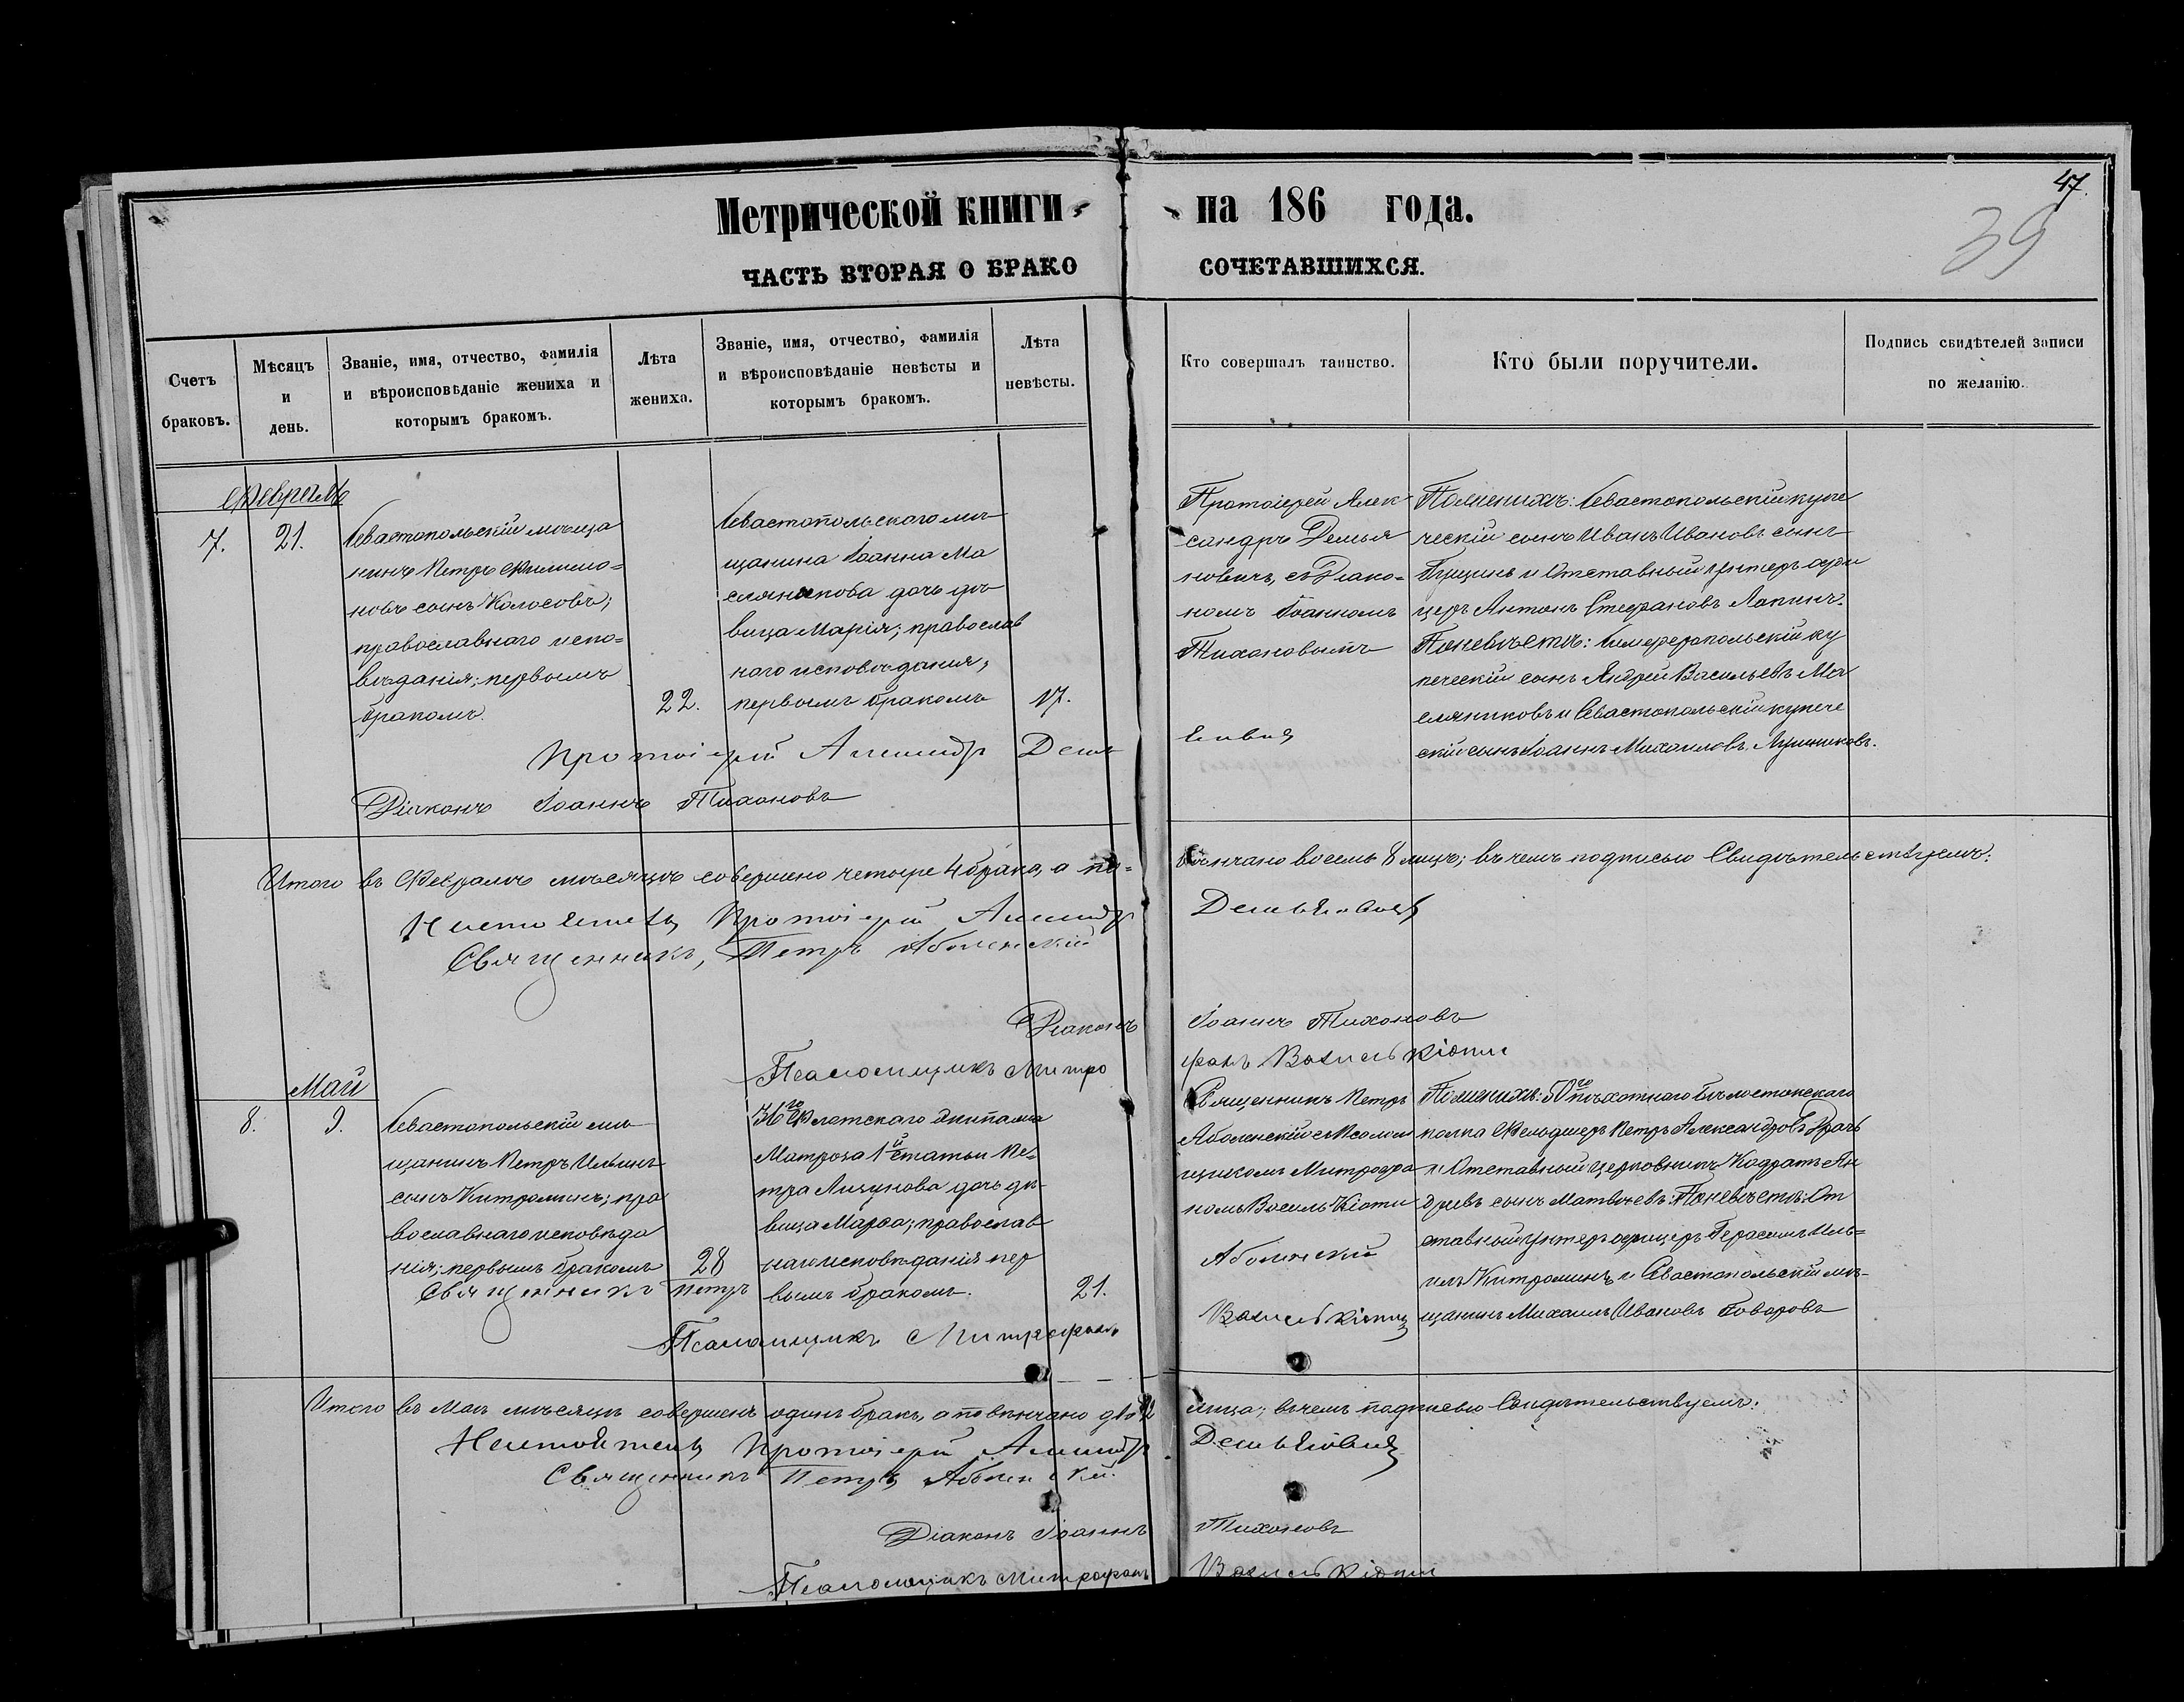 47.
39
Метрической книги на 186 года.
ЧАСТЬ ВТОРАЯ О БРАКОСОЧЕТАВШИХСЯ.
Счетъ
браковъ.
Мѣсяцъ
и
день.
Званіе, имя, отчество, фамилія
и вѣроисповѣданіе жениха и
которымъ бракомъ.
Лѣта
жениха.
Званіе, имя, отчество, фамилія
и вѣроисповѣданіе невѣсты и
которымъ бракомъ.
Лѣта
невѣсты.
Кто совершалъ таинство.
Кто были поручители.
Подпись свидѣтелей записи
по желанію.
Февраль
7.
21.
Севастопольскій мѣща
нинъ Петръ Филимо=
новъ сынъ Колосовъ;
православнаго испо=
вѣданія; первымъ
бракомъ.
22.
Севастопольскаго мѣ
щанина Іоанна Ма
сляникова дочь дѣ
вица Марія; православ
наго исповѣданія,
первымъ бракомъ
17.
Протоіерей Алек
сандръ Демья
новичъ, съ Діако=
номъ Іоанномъ
Тихоновымъ
По женихѣ: Севастопольскій купе
ческій сынъ Иванъ Ивановъ сынъ
и Отставный Унтеръ офи
церъ Антонъ Стефановъ Лапинъ.
По невѣстѣ: Симферопольскій ку
печескій сынъ Андрей Васильевъ Ма
сляниковъ и Севастопольскій купече
скій сынъ Іоаннъ Михаиловъ
Протоіерей Александръ Демьяновичъ
Діаконъ Іоаннъ Тихоновъ
Итого въ Февралѣ мѣсяцѣ совершено четыре 4 брака, а по=вѣнчано восемь 8 лицъ; въ чемъ подписью Свидѣтельствуемъ:
Настоятель Протоіерей Александръ Демьяновичъ
Священникъ, Петръ Аболенскій
Діаконъ Іоаннъ Тихоновъ
Псаломщикъ Митрофанъ Василькіоти
Май
8.
9.
Севастопольскій мѣ
щанинъ Петръ Ильинъ
сынъ Китроминъ; пра
вославнаго исповѣда
нія; первымъ бракомъ
28
36го Флотскаго Экипажа
Матроза 1й статьи Пе=
тра Лизунова дочь дѣ
вица Марфа; православ
наго исповѣданія пер
вымъ бракомъ.
21.
Священникъ Петръ
Аболенскій съ Псалом
щикомъ Митрофа
номъ Василь Кіоти
По женихѣ: 50го пѣхотнаго Бѣлостокскаго
полка Фельдшеръ Петръ Александровъ
и Отставный церковникъ Кодратъ Ан
дреевъ сынъ Матвѣевъ: По невѣстѣ: От
ставный Унтеръ офицеръ Герасимъ Иль=
инъ Китроминъ и Севастопольскій мѣ-
щанинъ Михаилъ Ивановъ Говоровъ
Священникъ Петръ Аболенскій
Псаломщикъ Митрофанъ Василькіоти
Итого въ Маѣ мѣсяцѣ совершенъ одинъ бракъ, а повѣнчано два 2 лица; въ чемъ подписью Свидѣтельствуемъ:
Настоятель Протоіерей Александръ Демьяновичъ
Священникъ Петръ Аболенскій.
Діаконъ Іоаннъ Тихоновъ
Псаломщикъ Митрофанъ Василькіоти